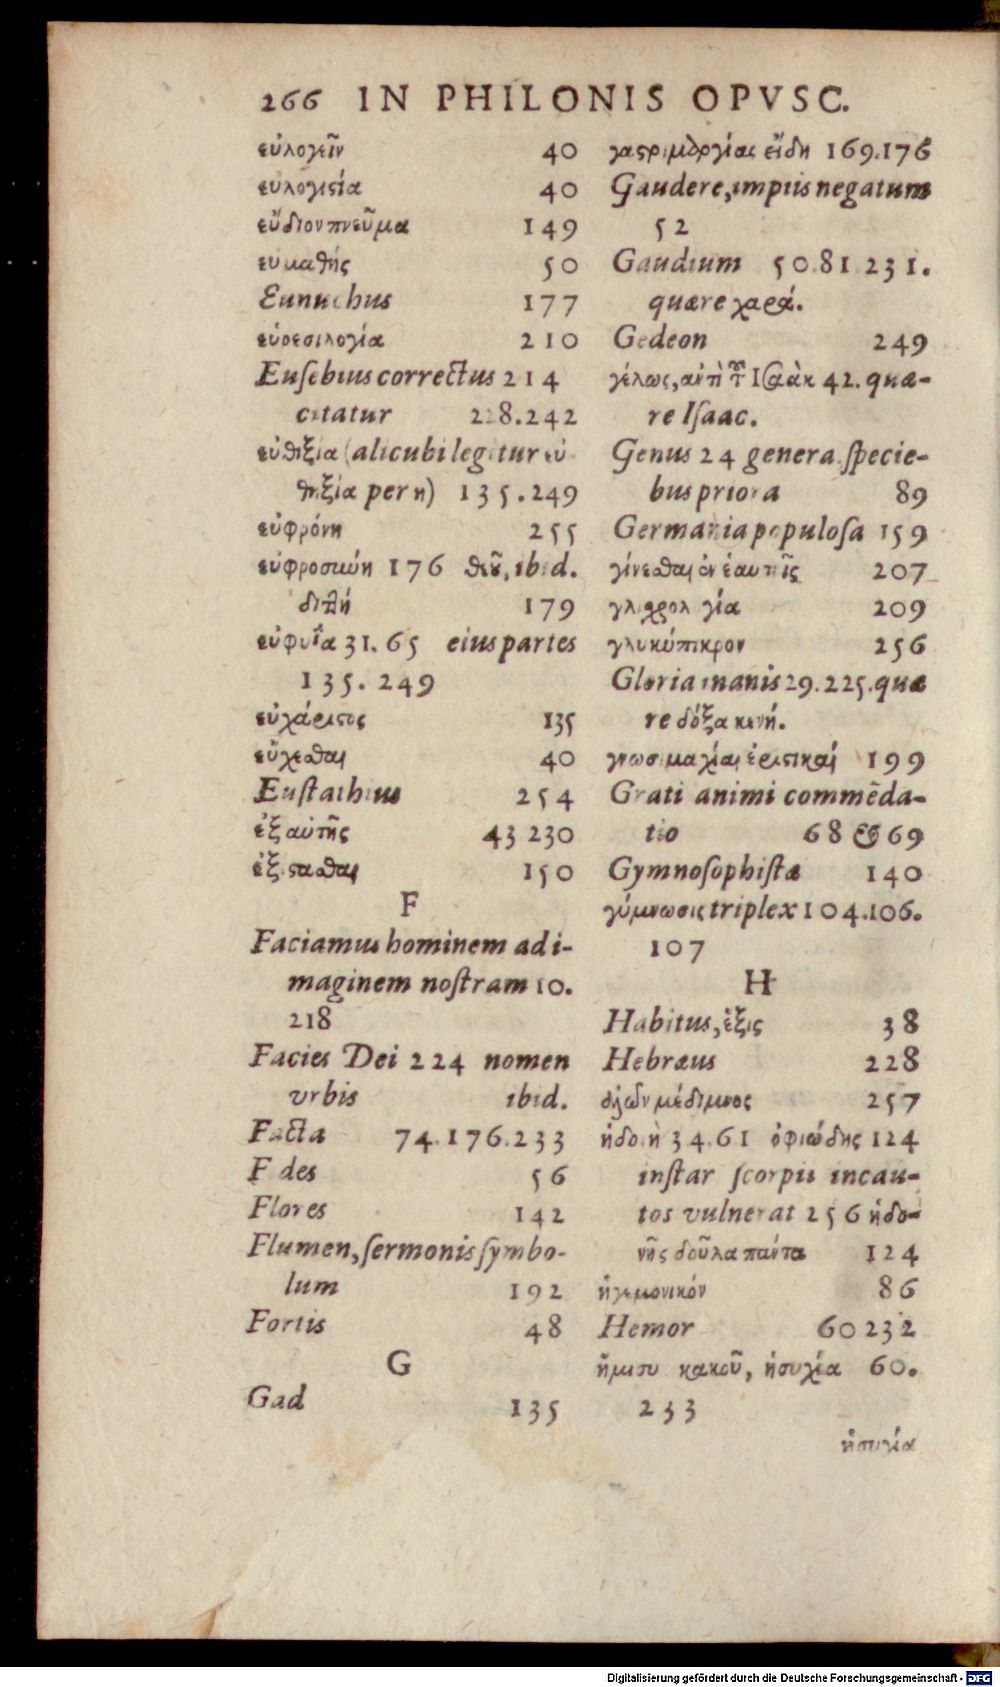 266 IN PHILONIS OPVSC.
εὐλογεῖν 40
εὐλογιςία 40
εὔδιον πνεῦμα 149
εὐμαθής 50
Eunuchus 177
εὑρεσιλογία 210
Euſebius correctus 214
citatur 228.242
εὐθιξία (alicubi legitur εὐ
θηξία per η) 135.249
εὐφρόνη 255
εὐφροσύνη 176 θεοῦ, ibid.
διπλῆ 179
εὐφυΐα 31. 65 eius partes
135. 249
εὐχάριςτος 135
εὔχεσθαι 40
Euſtathius 254
ἐξ αὐτῆς 43 230
ἐξίςασθαι 150
F
Faciamus hominem ad i-
maginem noſtram 10.
218
Facies Dei 224 nomen
vrbis ibid.
Facta 74.176.233
F des 56
Flores 142
Flumen, ſermonis ſymbo-
lum 192
Fortis 48
G
Gad 135
γαςριμαργίας εἴδη 169.176
Gaudere, impiis negatum
52
Gaudium 50.81 231.
quære χαρά.
Gedeon 249
γέλως, ἀντὶ τοῦ Ισαὰκ 42. quæ-
re Iſaac.
Genus 24 genera ſpecie-
bus priora 89
Germania populoſa 159
γίνεσθαι ἐν ἑαυτοῖς 207
γλισχρολογία 209
γλυκύπικρον 256
Gloria inanis 29.225. quæ
re δόξα κενή.
γνωσιμαχίαι ἐριςικαί 199
Grati animi commẽda-
tio 68 & 69
Gymnoſophiſtæ 140
γύμνωσις triplex 104.106.
107
H
Habitus, ἕξις 38
Hebræus 228
μέδιμνος 257
ἡδονὴ 34.61 ὀφιώδης 124
inſtar ſcorpii incau-
tos vulnerat 256 ἡδο-
νῆς δοῦλα πάντα 124
ἡγεμονικόν 86
Hemor 60 232
ἥμισυ κακοῦ, ἡσυχία 60.
233
ἡσυχία
Digitalisierung gefördert durch die Deutsche Forschungsgemeinschaft - DFG